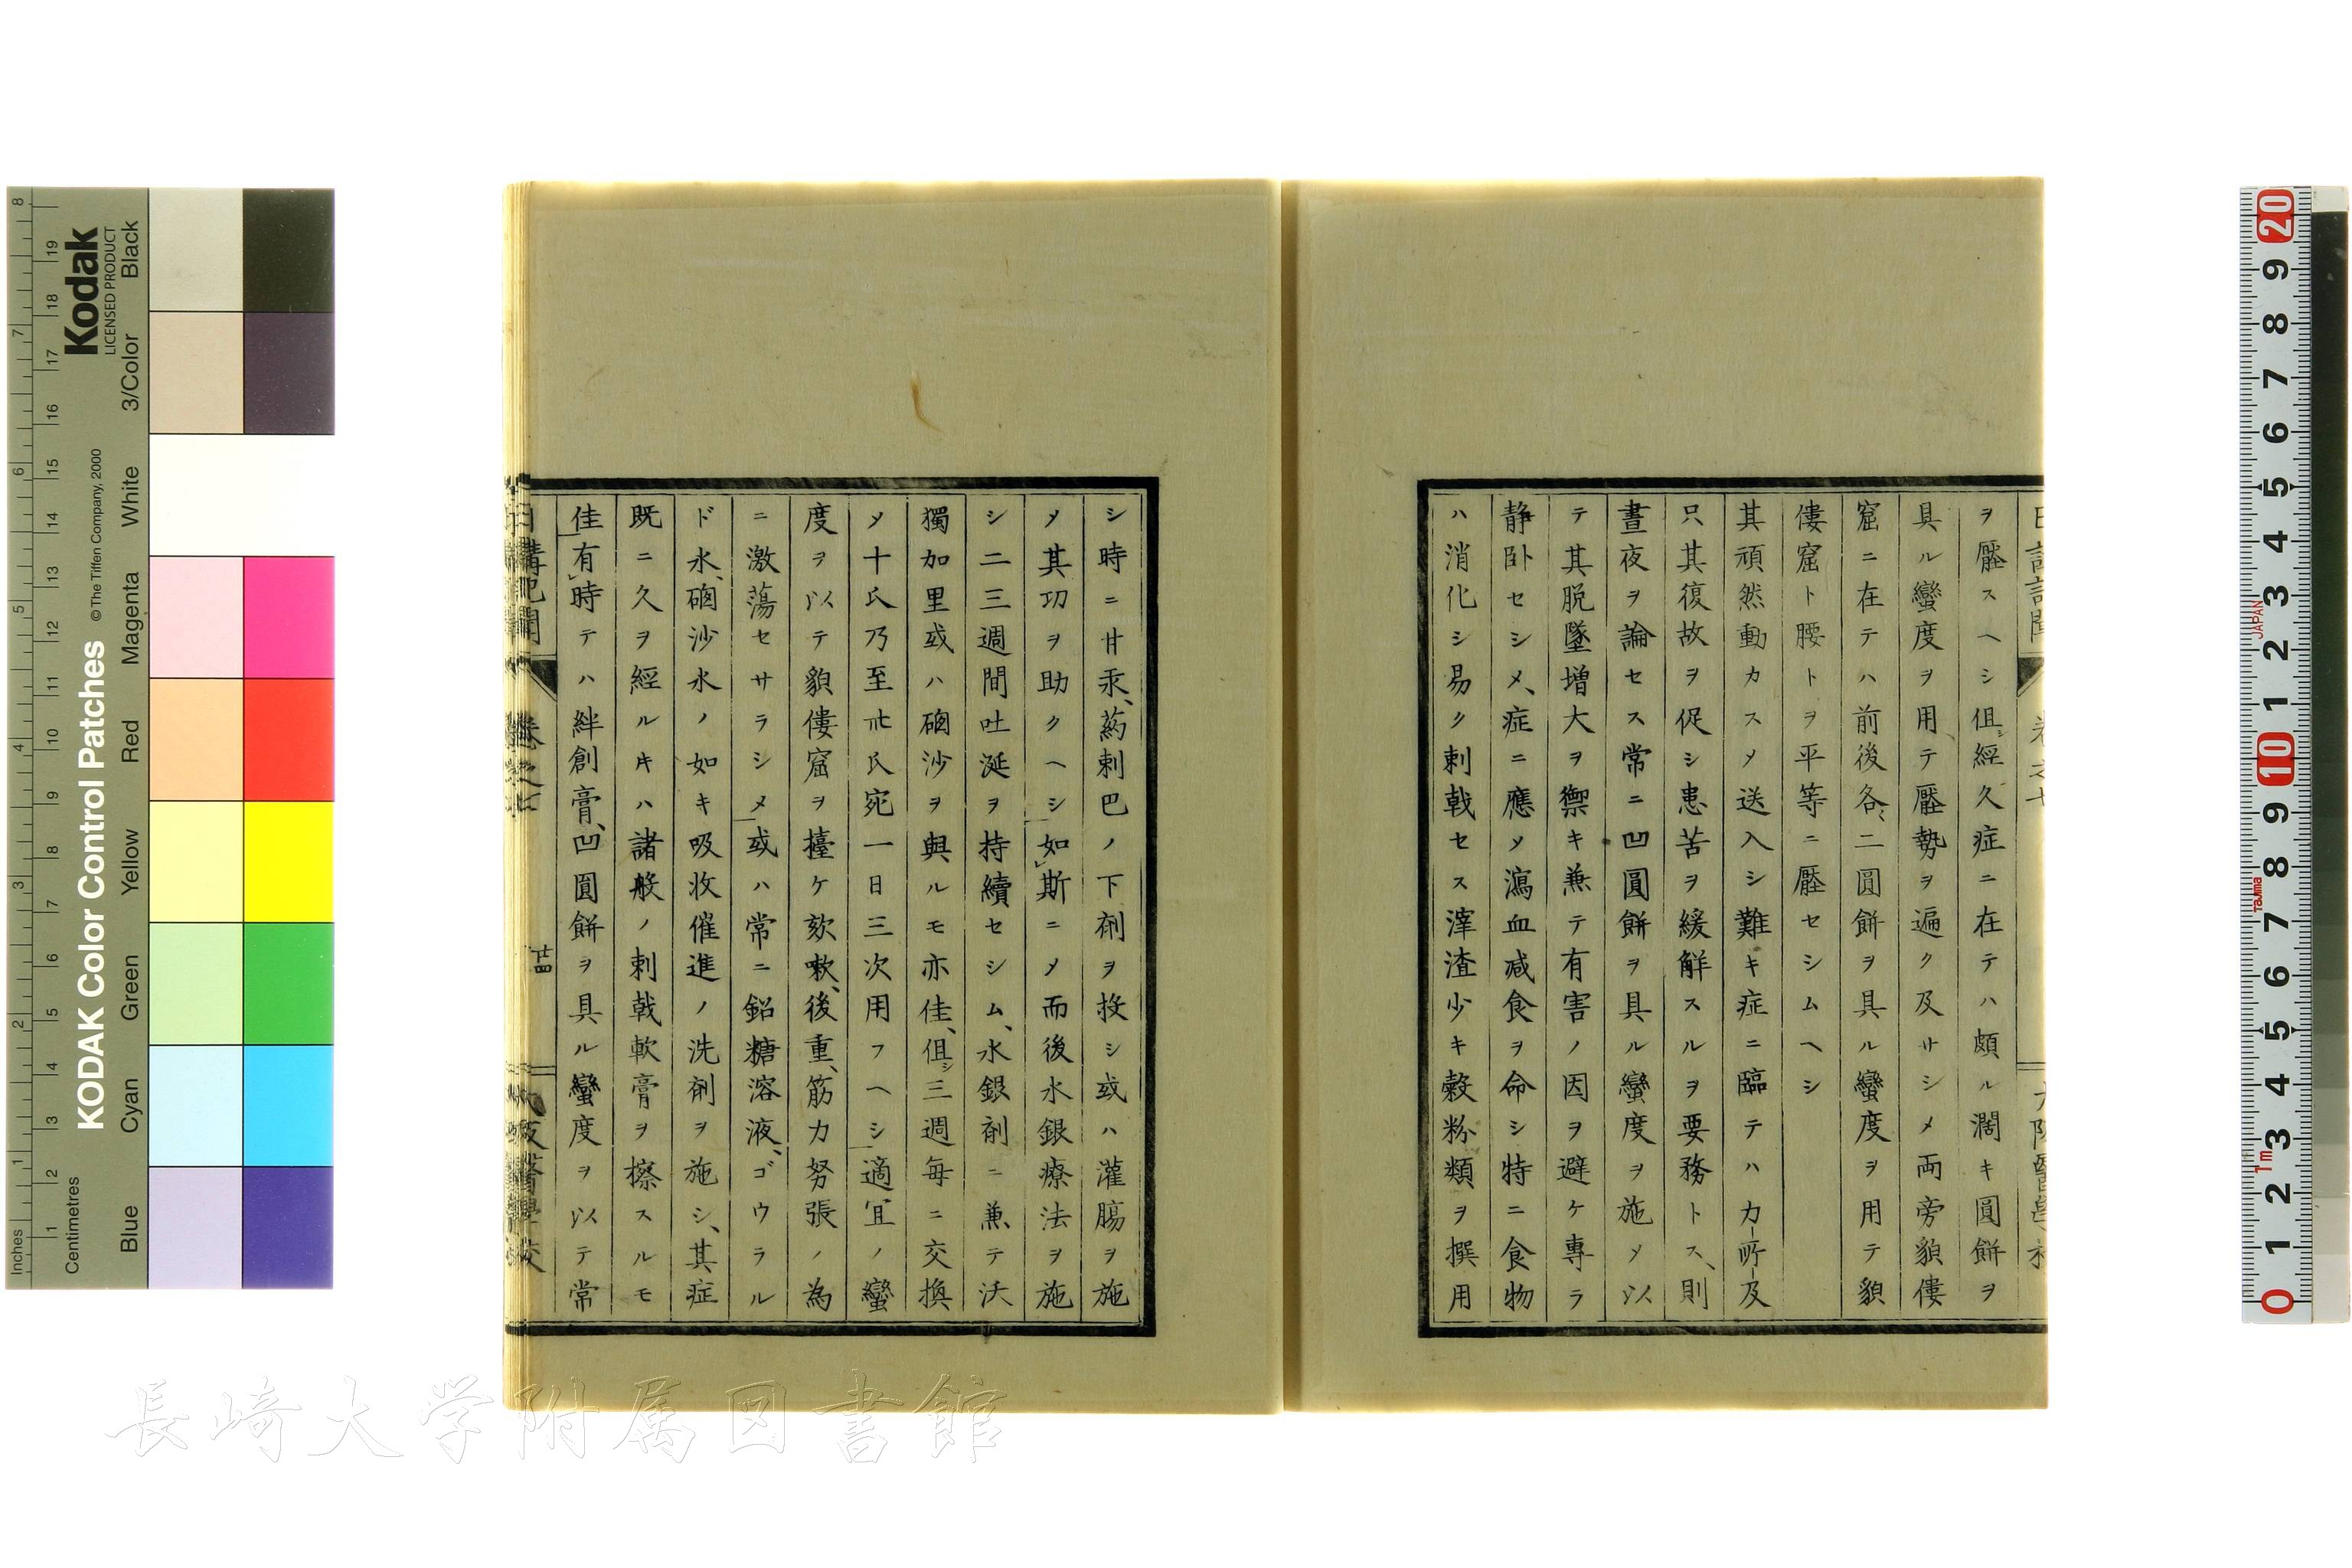 ヲ壓スヘシ但シ經久症ニ在テハ頗ル濶キ圓餅ヲ
具ル蠻度ヲ用テ壓勢ヲ遍ク及サシメ両旁貌僂
窟ニ在テハ前後各二圓餅ヲ具ル蠻度ヲ用テ貌
僂窟ト腰トヲ平等ニ壓セシムヘシ
其頑然動カスメ送入シ難キ症ニ臨テハ力所及
只其復故ヲ促シ患苦ヲ緩解スルヲ要務トス、則
晝夜ヲ論セス常ニ凹圓餅ヲ具ル蠻度ヲ施メ以
テ其脱墜増大ヲ禦キ兼テ有害ノ因ヲ避ケ專ラ
静卧セシメ、症ニ應メ瀉血减食ヲ命シ特ニ食物
ハ消化シ易ク刺戟セス滓渣少キ穀粉類ヲ撰用
シ時ニ甘汞、葯刺巴ノ下剤ヲ投シ或ハ灌膓ヲ施
メ其功ヲ助クヘシ如斯ニメ而後水銀療法ヲ施
シ二三週間吐涎ヲ持續セシム、水銀剤ニ兼テ沃
獨加里或ハ硇沙ヲ與ルモ亦佳、但シ三週毎ニ交換
メ十氏乃至卅氏宛一日三次用フヘシ適宜ノ蠻
度ヲ以テ貌僂窟ヲ擡ケ欬嗽、後重、筋力努張ノ為
ニ激蕩セサラシメ或ハ常ニ鉛糖溶液、ゴウラル
ド水、硇沙水ノ如キ吸收催進ノ洗剤ヲ施シ、其症
既ニ久ヲ經ルキハ諸般ノ刺戟軟膏ヲ擦スルモ
佳有時テハ絆創膏、凹圓餅ヲ具ル蠻度ヲ以テ常
日講記聞 卷之七 廿四 大阪醫學校
KODAK Color Control Patches
© The Tiffen Company, 2000
Kodak
LICENSED PRODUCT
Inches
Centimetres
Blue Cyan Green Yellow Red Magenta White 3/Color Black
JAPAN
Tajima
1m
長崎大学附属図書館